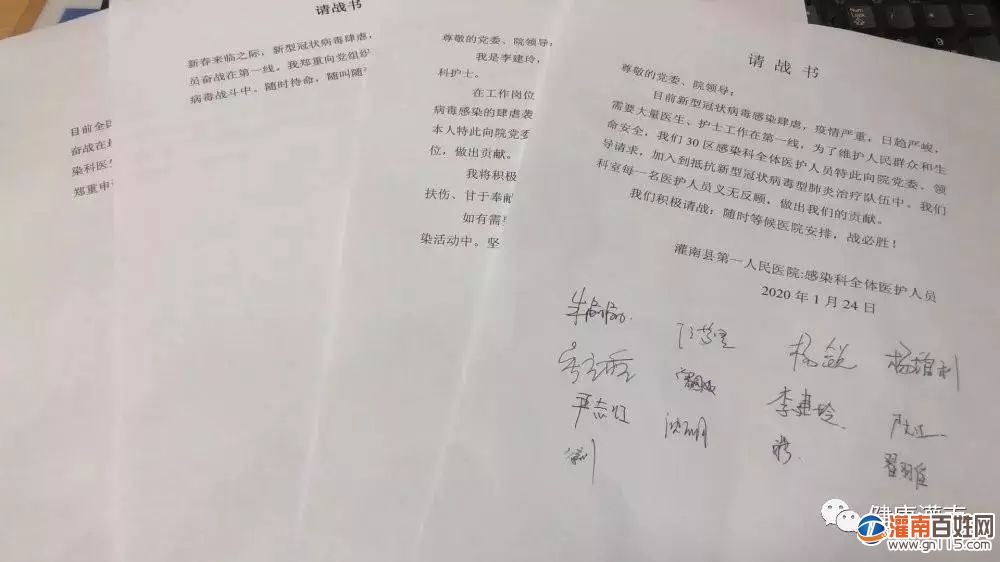 请战书
新春来临之际，新型冠状病毒肆虐，
员奋战在第一线。我郑重向党组织
病毒战斗中。随时待命，随叫随
目前全国
奋战在
染科医
郑重申
尊敬的党委、院领导：
我是李建玲，
科护士。
在工作岗位
病毒感染的肆虐袭
本人特此向院党委
位，做出贡献。
我将积极
扶伤、甘于奉献
如有需要
染活动中。坚
请战书
尊敬的党委、院领导：
目前新型冠状病毒感染肆虐，疫情严重，日趋严峻，
需要大量医生、护士工作在第一线，为了维护人民群众和生
命安全，我们30区感染科全体医护人员特此向院党委、领
导请求，加入到抵抗新型冠状病毒型肺炎治疗队伍中。我们
科室每一名医护人员义无反顾，做出我们的贡献。
我们积极请战：随时等候医院安排，战必胜！
灌南县第一人民医院:感染科全体医护人员
2020年1月24日
杨锐
严志红
李建玲
翟羽佳
健康灌南
灌南百姓网
www.gn115.com